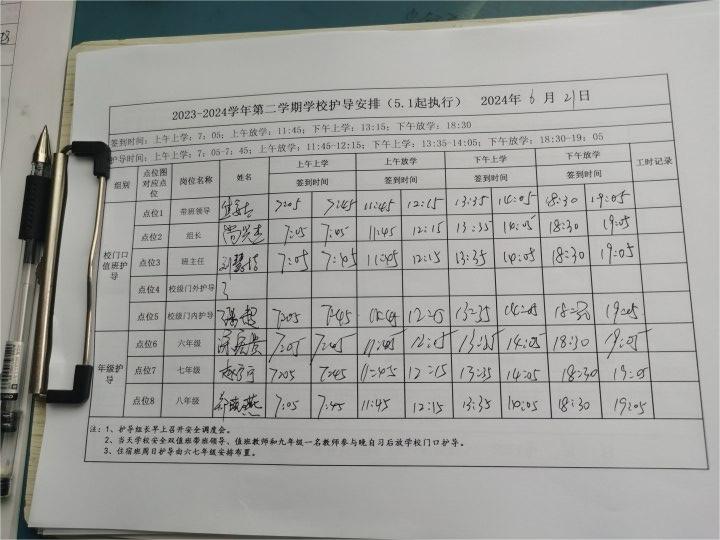 2023-2024学年第二学期学校护导安排（5.1起执行） 2024年 6 月 21日
签到时间：上午上学：7：05；上午放学：11:45；下午上学：13:15；下午放学：18:30
护导时间：上午上学：7：05-7：45；上午放学：11:45-12:15；下午上学：13:35-14:05；下午放学：18:30-19：05
组别 点位图对应点位 岗位名称 姓名 上午上学 上午放学 下午上学 下午放学 工时记录
签到时间 签到时间 签到时间 签到时间
校门口值班护导
点位1 带班领导 7:05 7:45 11:45 12:15 13:35 14:05 18:30 19:05
点位2 组长 7:05 7:45 11:45 12:15 13:35 14:05 18:30 19:05
点位3 班主任 7:05 7:45 11:45 12:15 13:35 14:05 18:30 19:05
点位4 校级门外护导
点位5 校级门内护导 7:05 7:45 11:45 12:15 13:35 14:05 18:30 19:05
年级护导
点位6 六年级 7:05 7:45 11:45 12:15 13:35 14:05 18:30 19:05
点位7 七年级 7:05 7:45 11:45 12:15 13:35 14:05 18:30 19:05
点位8 八年级 7:05 7:45 11:45 12:15 13:35 14:05 18:30 19:05
注：1、护导组长早上召开安全调度会。
2、当天学校安全双值班带班领导、值班教师和九年级一名教师参与晚自习后放学校门口护导。
3、住宿班周日护导由六七年级安排布置。